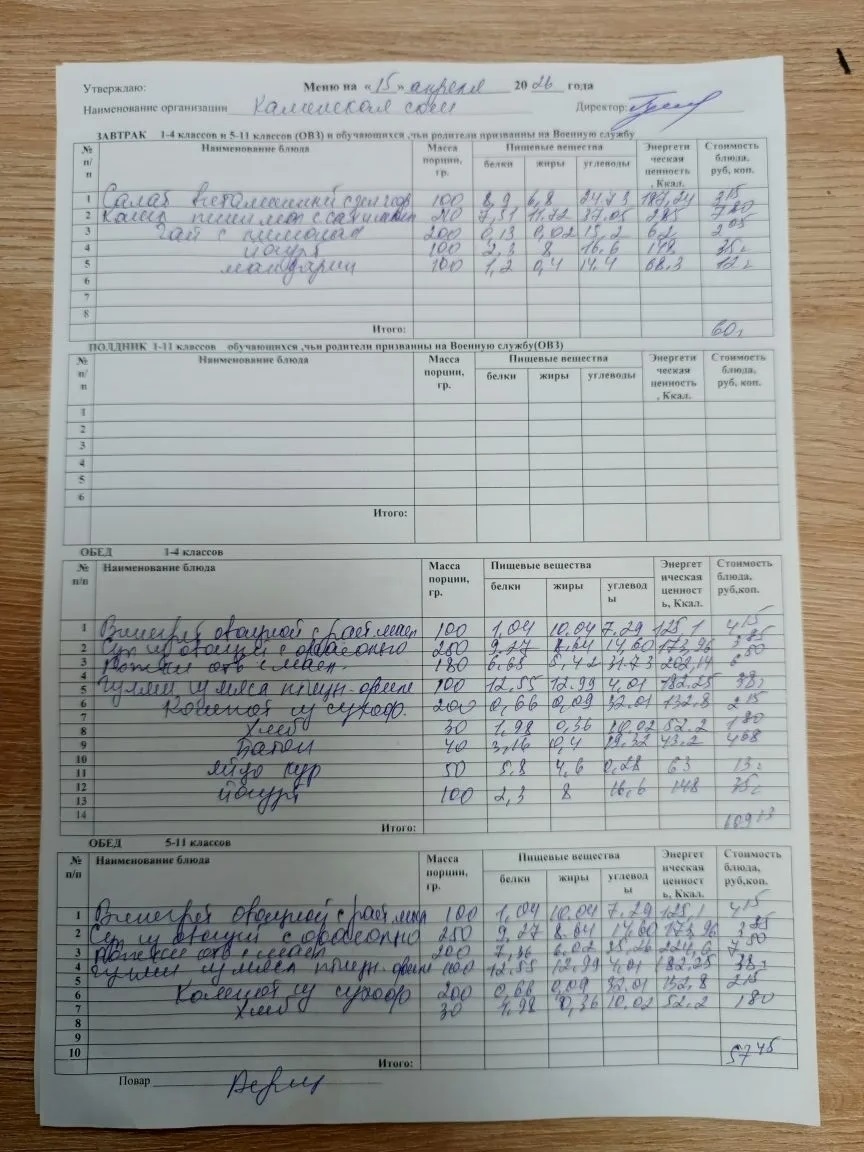 Утверждаю: Меню на «15» апреля 2026 года
Наименование организации Каменская сош Директор:
ЗАВТРАК 1-4 классов и 5-11 классов (ОВЗ) и обучающихся ,чьи родители призванны на Военную службу
№ п/п Наименование блюда Масса порции, гр. Пищевые вещества Энергетическая ценность, Ккал. Стоимость блюда, руб, коп.
белки жиры углеводы
1 Салат витаминный 100 8,9 6,8 24.73 187,24 3 15
2 Каша 210 7,31 11.72 37.05 285 7 80
3 Чай с лимоном 200 0,13 0,02 15,2 62 2 05
4 йогурт 100 2,3 8 16.6 148 35
5 мандарин 100 1,2 0,4 14.4 68.3 12
6
7
8
Итого: 60
ПОЛДНИК 1-11 классов обучающихся ,чьи родители призванны на Военную службу(ОВЗ)
№ п/п Наименование блюда Масса порции, гр. Пищевые вещества Энергетическая ценность, Ккал. Стоимость блюда, руб, коп.
белки жиры углеводы
1
2
3
4
5
6
Итого:
ОБЕД 1-4 классов
№ п/п Наименование блюда Масса порции, гр. Пищевые вещества Энергетическая ценность, Ккал. Стоимость блюда, руб,коп.
белки жиры углеводы
1 Винегрет овощной с раст.масл 100 1,04 10.04 7.29 125.1 4 15
2 Суп из овощей с 250 9,27 8.64 14,60 173,96 3 85
3 отв с масл. 180 6.63 5,42 31.73 202,14 6 50
4
5 Гуляш из мяса птицы 100 12.55 12.99 4,01 182.25 38
6 Компот из сухофр. 200 0,66 0,09 32.01 132.8 2 15
7
8 Хлеб 30 1,98 0,36 10.02 52.2 1 80
9 Батон 40 3,16 0,4 19.32 43.2 4 68
10
11 яйцо кур 50 5.8 4,6 0,28 63 13
12 йогурт 100 2,3 8 16,6 148 35
13
14
Итого: 109 13
ОБЕД 5-11 классов
№ п/п Наименование блюда Масса порции, гр. Пищевые вещества Энергетическая ценность, Ккал. Стоимость блюда, руб,коп.
белки жиры углеводы
1 Винегрет овощной с раст.мал 100 1,04 10,04 7.29 125,1 4 15
2 Суп из овощей с 250 9,27 8.64 14.60 173,96 3 85
3 отв с масл 200 7,36 6,02 35,26 224,6 7 50
4 Гуляш из мяса птицы 100 12.55 12,99 4,01 182.25 38
5
6 Компот из сухофр 200 0,66 0,09 32.01 132.8 2 15
7 Хлеб 30 1,98 0,36 10.02 52.2 1 80
8
9
10
Итого: 57 45
Повар